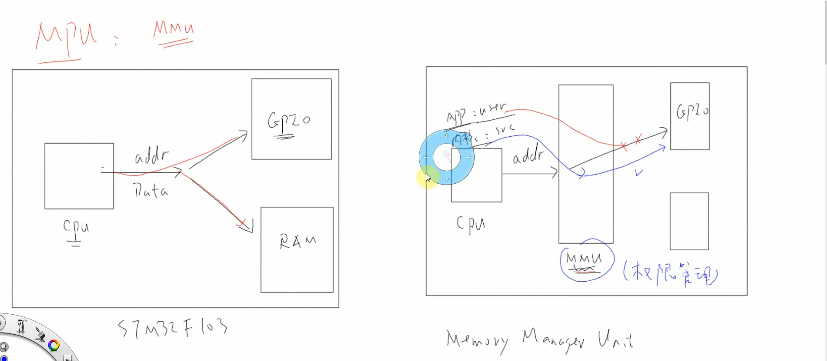 MPU : MMU
GPIO
addr
Data
CPU
RAM
STM32F103
APP : user
: svc
addr
GPIO
CPU
MMU
(权限管理)
Memory Manager Unit